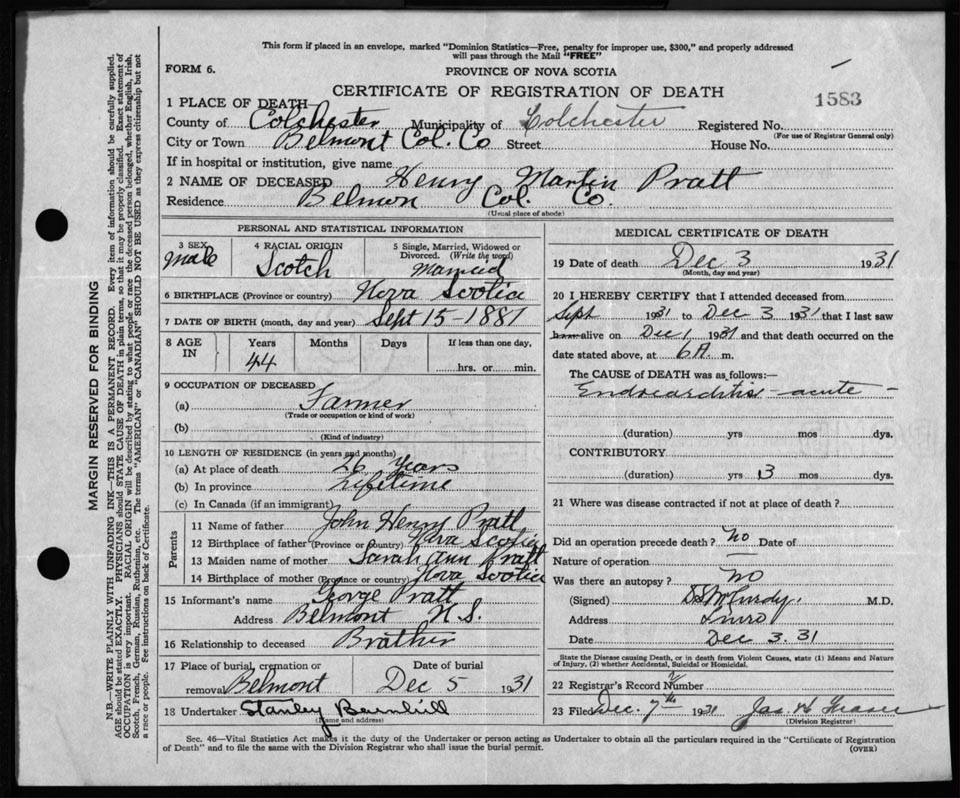 This form if placed in an envelope, marked "Dominion Statistics—Free, penalty for improper use, $300," and properly addressed
will pass through the Mail "FREE"
FORM 6.
PROVINCE OF NOVA SCOTIA
CERTIFICATE OF REGISTRATION OF DEATH
1583
1 PLACE OF DEATH
County of Colchester Municipality of Colchester Registered No.
(For use of Registrar General only)
City or Town Belmont Col. Co Street House No.
If in hospital or institution, give name
2 NAME OF DECEASED Henry Martin Pratt
Residence Belmon Col. Co.
(Usual place of abode)
PERSONAL AND STATISTICAL INFORMATION
3 SEX
male
4 RACIAL ORIGIN
Scotch
5 Single, Married, Widowed or
Divorced. (Write the word)
Married
6 BIRTHPLACE (Province or country) Nova Scotia
7 DATE OF BIRTH (month, day and year) Sept 15-1887
8 AGE IN
Years Months Days If less than one day,
44
hrs. or min.
9 OCCUPATION OF DECEASED
(a) Farmer
(Trade or occupation or kind of work)
(b)
(Kind of industry)
10 LENGTH OF RESIDENCE (in years and months)
(a) At place of death 26 Years
(b) In province Lifetime
(c) In Canada (if an immigrant)
Parents
11 Name of father John Henry Pratt
12 Birthplace of father (Province or country) Nova Scotia
13 Maiden name of mother Sarah Ann Pratt
14 Birthplace of mother (Province or country) Nova Scotia
15 Informant's name George Pratt
Address Belmont N.S.
16 Relationship to deceased Brother
17 Place of burial, cremation or
removal Belmont
Date of burial
Dec 5 1931
18 Undertaker Stanley Barnhill
(Name and address)
MEDICAL CERTIFICATE OF DEATH
19 Date of death Dec 3 1931
(Month, day and year)
20 I HEREBY CERTIFY that I attended deceased from
Sept 1931 to Dec 3 1931 that I last saw
h alive on Dec 1 1931 and that death occurred on the
date stated above, at 6 A. m.
The CAUSE of DEATH was as follows:—
Endocarditis - acute -
(duration) yrs mos dys.
CONTRIBUTORY
(duration) yrs 3 mos dys.
21 Where was disease contracted if not at place of death?
Did an operation precede death? No Date of
Nature of operation —
Was there an autopsy? No
(Signed) McCurdy. M.D.
Address Truro
Date Dec 3. 31
State the Disease causing Death, or in death from Violent Causes, state (1) Means and Nature
of Injury, (2) whether Accidental, Suicidal or Homicidal.
22 Registrar's Record Number
23 Filed Dec. 7th 1931 Jas. Fraser
(Division Registrar)
Sec. 46—Vital Statistics Act makes it the duty of the Undertaker or person acting as Undertaker to obtain all the particulars required in the "Certificate of Registration
of Death" and to file the same with the Division Registrar who shall issue the burial permit.
(OVER)
MARGIN RESERVED FOR BINDING
N.B.—WRITE PLAINLY WITH UNFADING INK—THIS IS A PERMANENT RECORD. Every item of information should be carefully supplied.
AGE should be stated EXACTLY. PHYSICIANS should STATE CAUSE OF DEATH in plain terms, so that it may be properly classified. Exact statement of
OCCUPATION is very important. RACIAL ORIGIN will be described by stating to what people or race the deceased person belonged, whether English, Irish,
Scotch, French, German, Russian, Ruthenian, etc. The terms "AMERICAN" or "CANADIAN" SHOULD NOT BE USED as they express citizenship but not
a race or people. Fee instructions on back of Certificate.